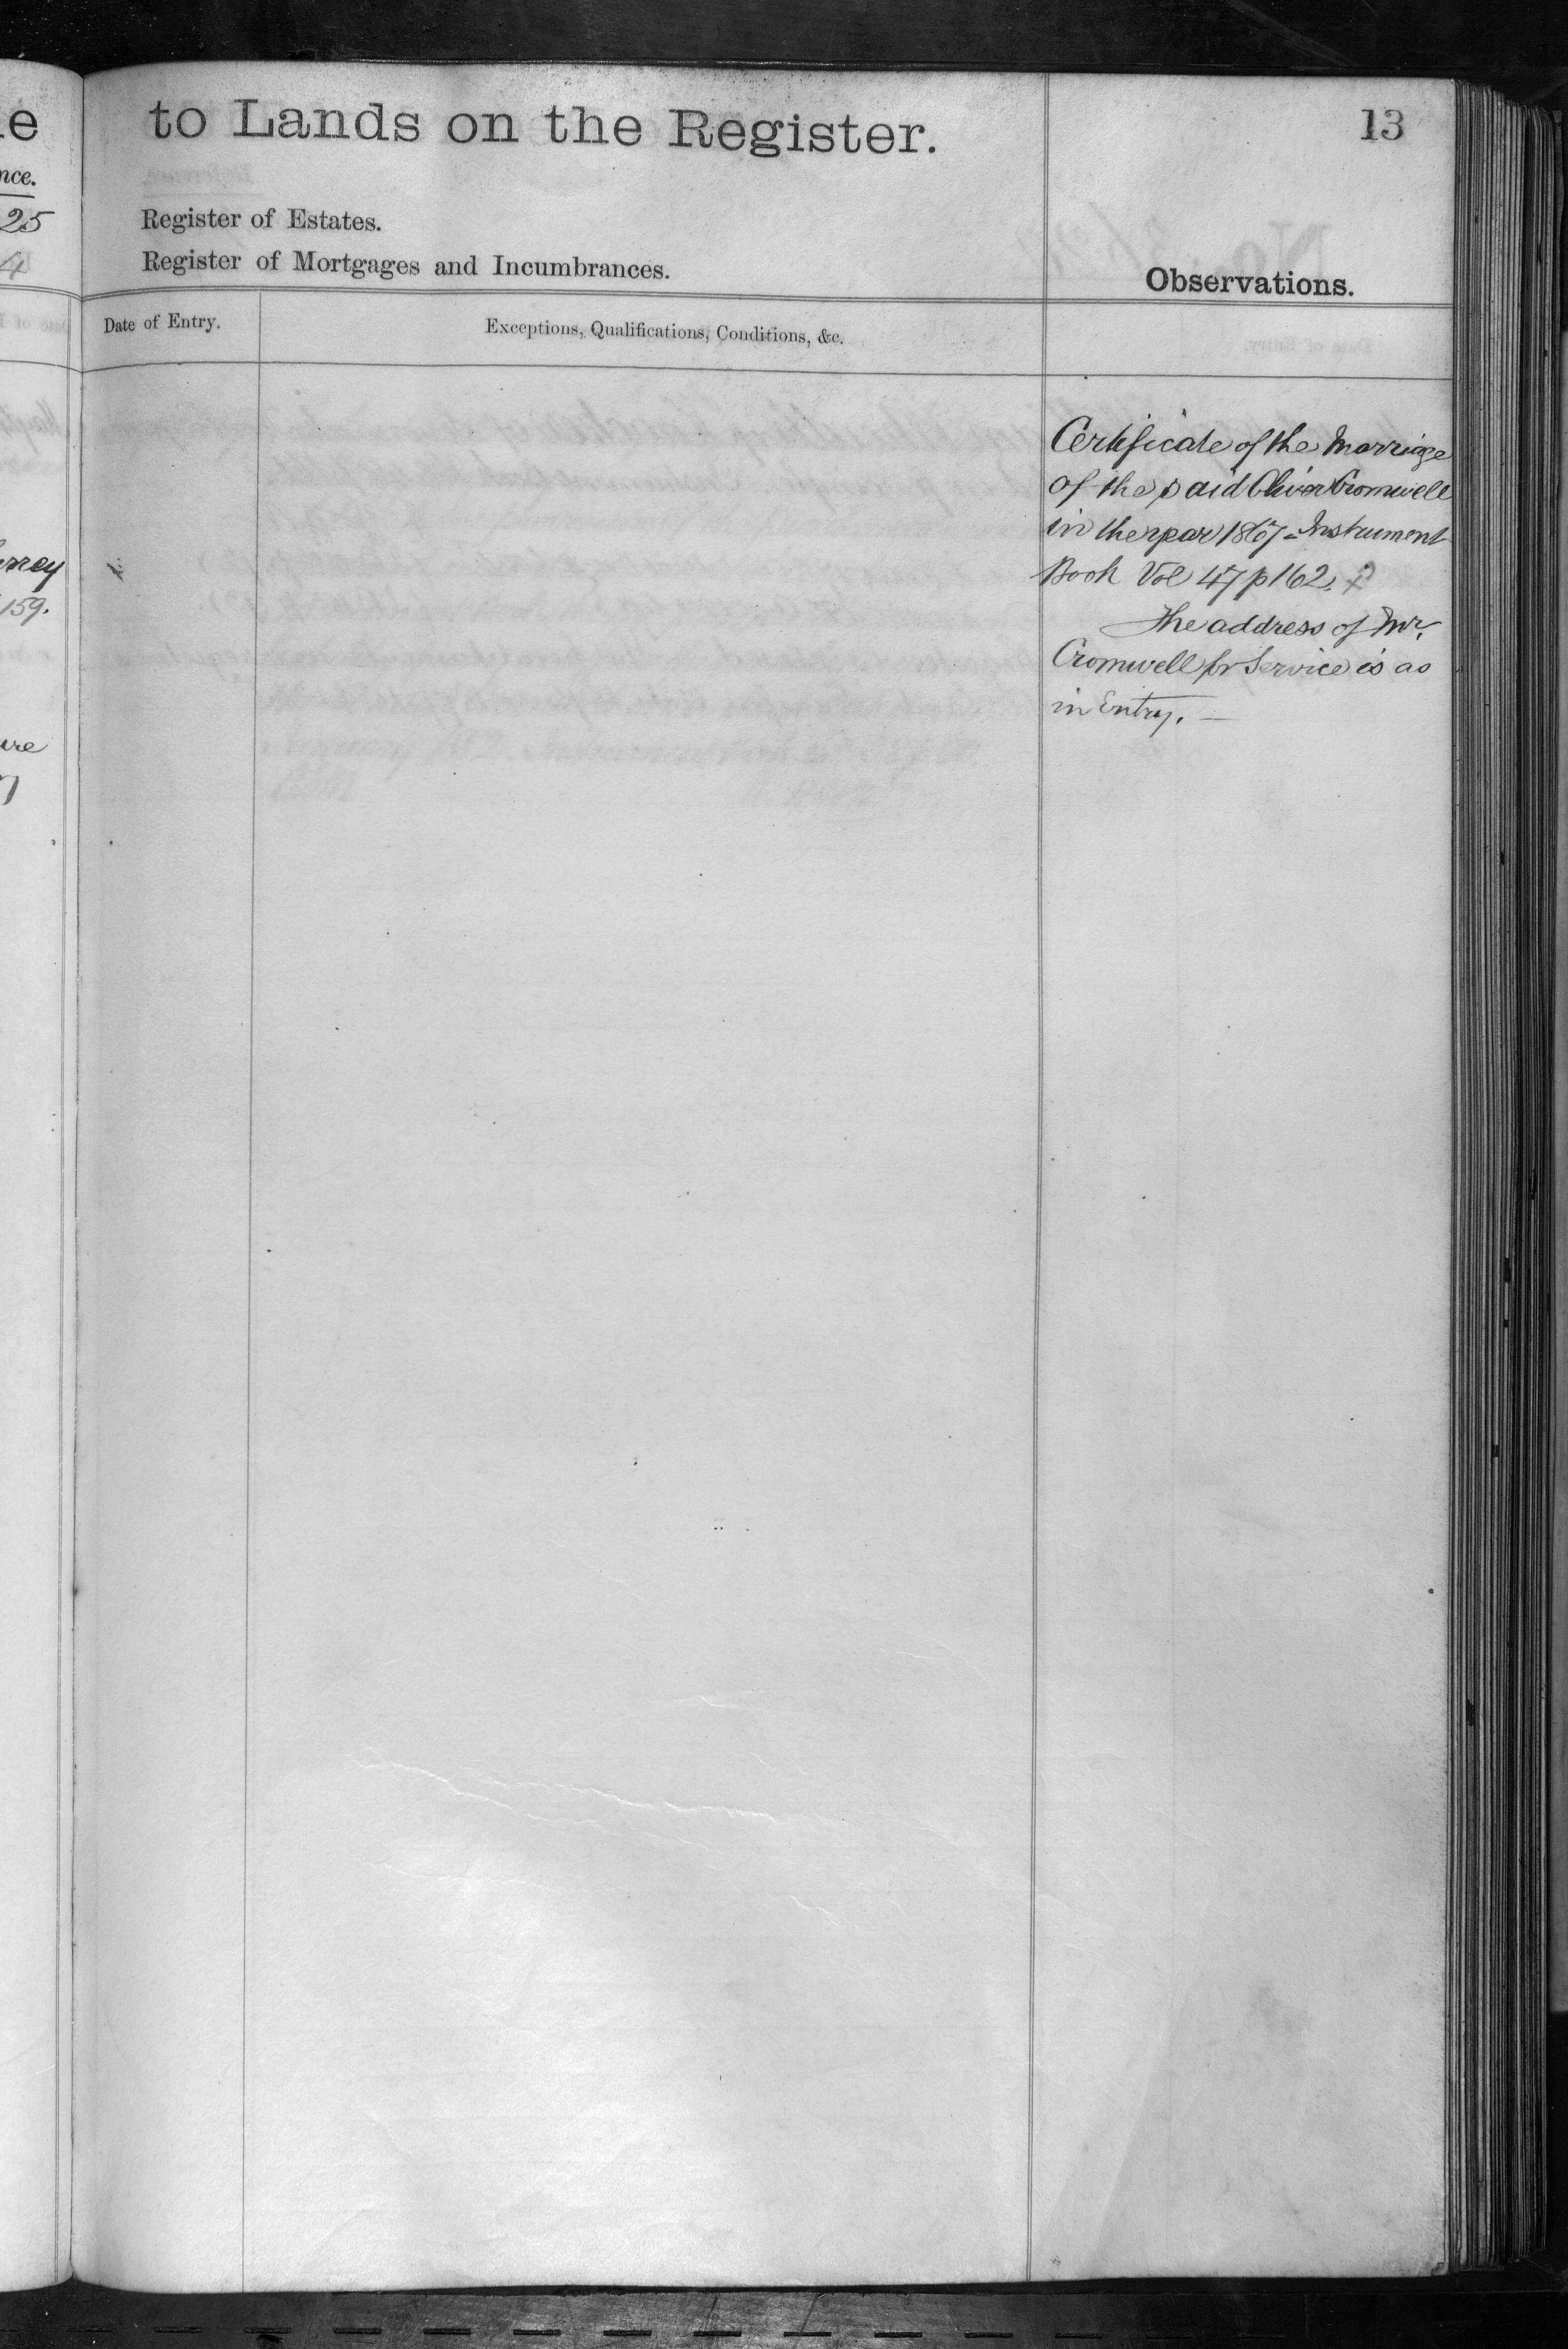 e
nce.
25
4
rrey
159.
ure
to Lands on the Register.
13
Register of Estates.
Register of Mortgages and Incumbrances.
Observations.
Date of Entry.
Exceptions, Qualifications, Conditions, &c.
Certificate of the Marriage
of the said Oliver Cromwell
in the year 1867 - Instrument
Book Vol 47 p 162.
The address of Mr.
Cromwell for Service is as
in Entry. —